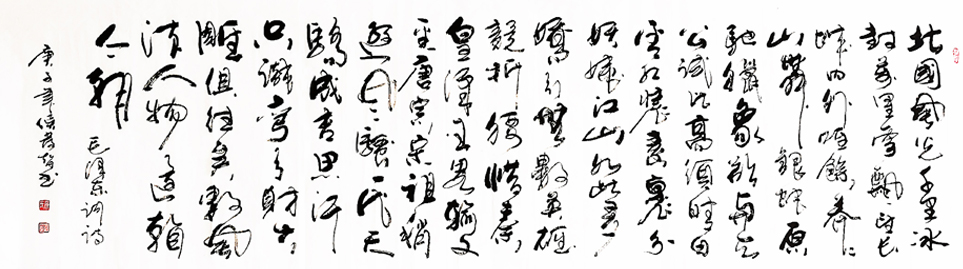 北國風光千里冰
封萬里雪飄望長
城内外唯餘莽莽
山舞銀蛇原
馳蠟象欲與天
公試比高須晴日
看紅裝素裹分
妖嬈江山如此多
嬌引無數英雄
競折腰惜秦
皇漢武略輸文
采唐宗宋祖稍
遜風騷一代天
驕成吉思汗
只識彎弓射大
雕俱往矣數風
流人物還看
今朝
毛澤東詞詩
庚子年書